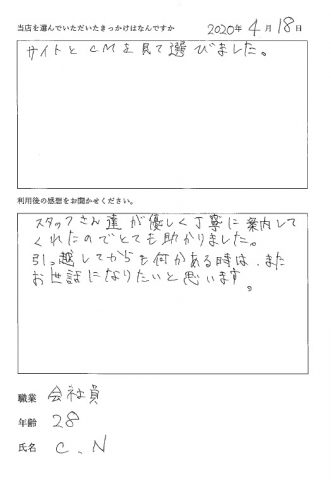 当店を選んでいただいたきっかけはなんですか 2020年 4月 18日
サイトとCMを見て選びました。
利用後の感想をお聞かせください。
スタッフさん達が優しく丁寧に案内して
くれたのでとても助かりました。
引っ越してからも何かある時は、また
お世話になりたいと思います。
職業 会社員
年齢 28
氏名 C.N